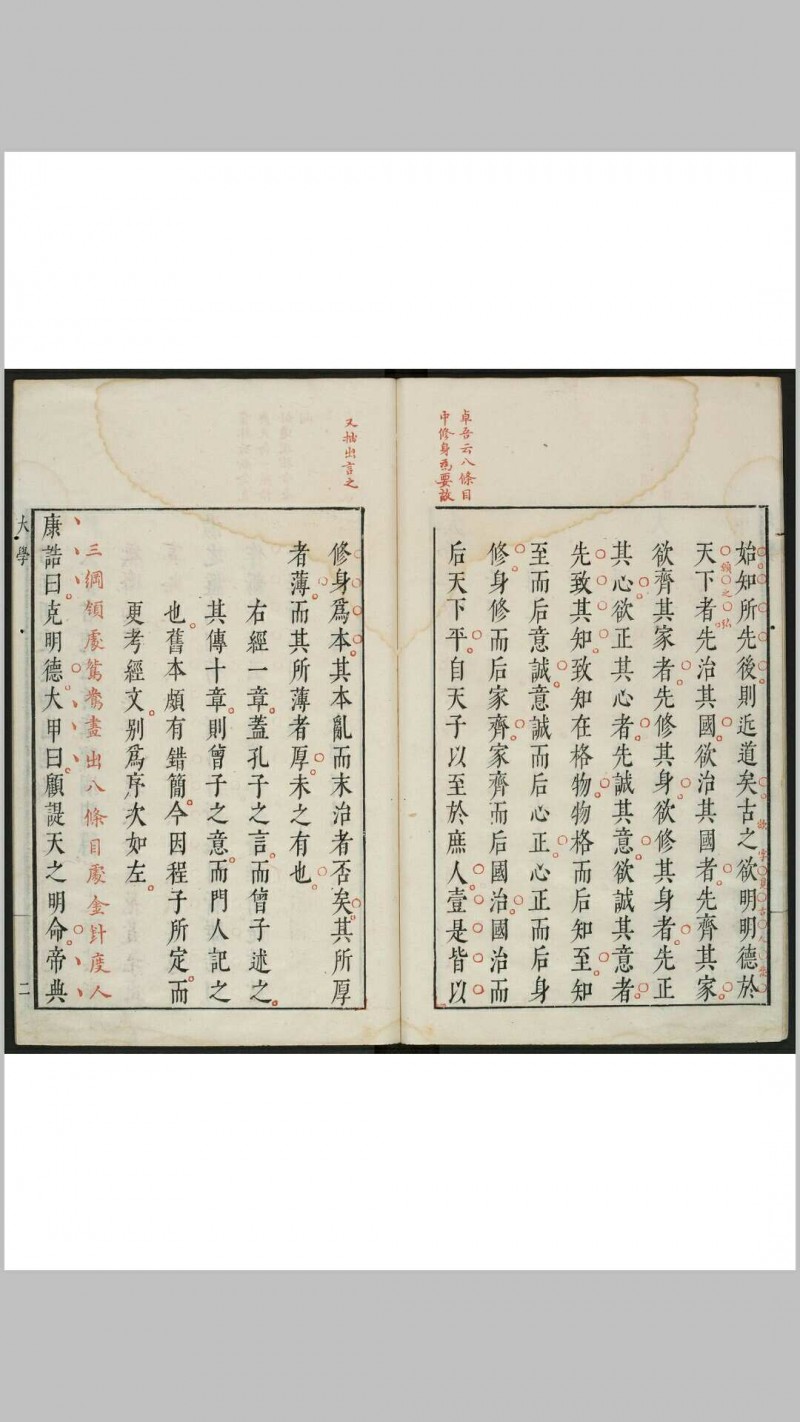 卓吾云八條目
中修身爲要故
始知所先後則近道矣古之欲明明德於
天下者先治其國欲治其國者先齊其家
欲齊其家者先修其身欲修其身者先正
其心欲正其心者先誠其意欲誠其意者
先致其知致知在格物物格而后知至知
至而后意誠意誠而后心正心正而后身
修身修而后家齊家齊而后國治國治而
后天下平自天子以至於庶人壹是皆以
又抽出言之
修身爲本其本亂而末治者否矣其所厚
者薄而其所薄者厚未之有也
右經一章蓋孔子之言而曾子述之
其傳十章則曾子之意而門人記之
也舊本頗有錯簡今因程子所定而
更考經文別爲序次如左
三綱領處鴛鴦畫出八條目處金針度人
康誥曰克明德大甲曰顧諟天之明命帝典
大學
二